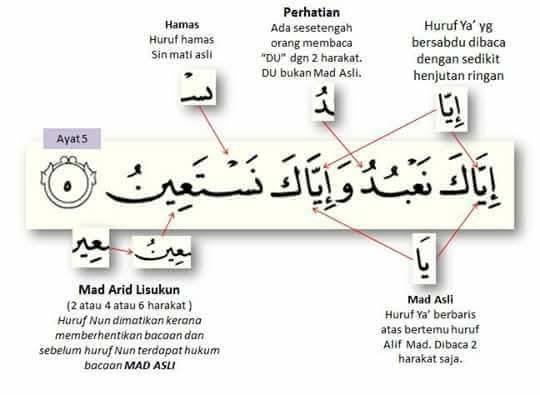 Hamas
Huruf hamas
Sin mati asli
نسْـ
Perhatian
Ada sesetengah
orang membaca
“DU” dgn 2 harakat.
DU bukan Mad Asli.
دُ
Huruf Ya’ yg
bersabdu dibaca
dengan sedikit
henjutan ringan
إِيَّا
Ayat 5
إِيَّاكَ نَعْبُدُ وَإِيَّاكَ نَسْتَعِينُ ٥
عِينُ
Mad Arid Lisukun
(2 atau 4 atau 6 harakat )
Huruf Nun dimatikan kerana
memberhentikan bacaan dan
sebelum huruf Nun terdapat hukum
bacaan MAD ASLI
يَا
Mad Asli
Huruf Ya’ berbaris
atas bertemu huruf
Alif Mad. Dibaca 2
harakat saja.